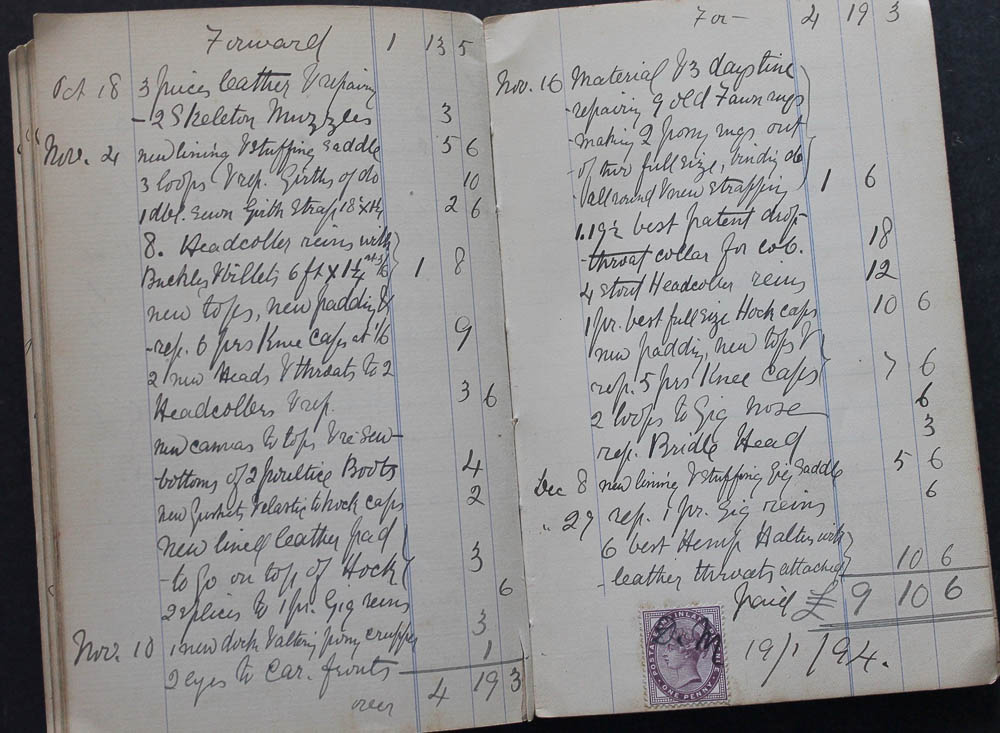 Forward 1 13 5
Oct 18 3 pieces leather & repairing
- 2 Skeleton Muzzles 3
Nov. 4 new lining & stuffing Saddle 5 6
3 loops & rep. Girths of do 10
1 dbl. sewn Girth Strap 18" x 1¼ 2 6
8. Headcoller reins with
Buckles & billets 6 ft x 1¼ at 3/6 1 8
new tops, new padding &
-rep. 6 prs Knee Caps at 1/6 9
2 new Heads & throats to 2
Headcollers & rep. 3 6
new canvas to tops & re sew-
bottoms of 2 poultice Boots 4
new gussets & elastic to hock caps 2
new lined leather pad
- to go on top of Hock 3
2 splices to 1 pr. Gig reins 6
Nov. 10 1 new dock & altering pony crupper 3
2 eyes to car. fronts 1
over 4 19 3
For- 4 19 3
Nov. 16 Material & 3 days time
-repairing 9 old Fawn rugs
-making 2 pony rugs out
-of two full size, binding do
-all round & new strapping 1 6
1. 19½ best patent drop-
-throat collar for cob. 18
4 stout Headcoller reins 12
1 pr. best full size Hock caps 10 6
new padding, new tops &
rep. 5 prs Knee Caps 7 6
2 loops to Gig nose 6
rep. Bridle Head 3
Dec 8 new lining & stuffing Gig Saddle 5 6
" 29 rep. 1 pr. Gig reins 6
6 best Hemp Halters with
-leather throats attached 10 6
paid £ 9 10 6
19/1/94.
POSTAGE AND INLAND REVENUE
ONE PENNY